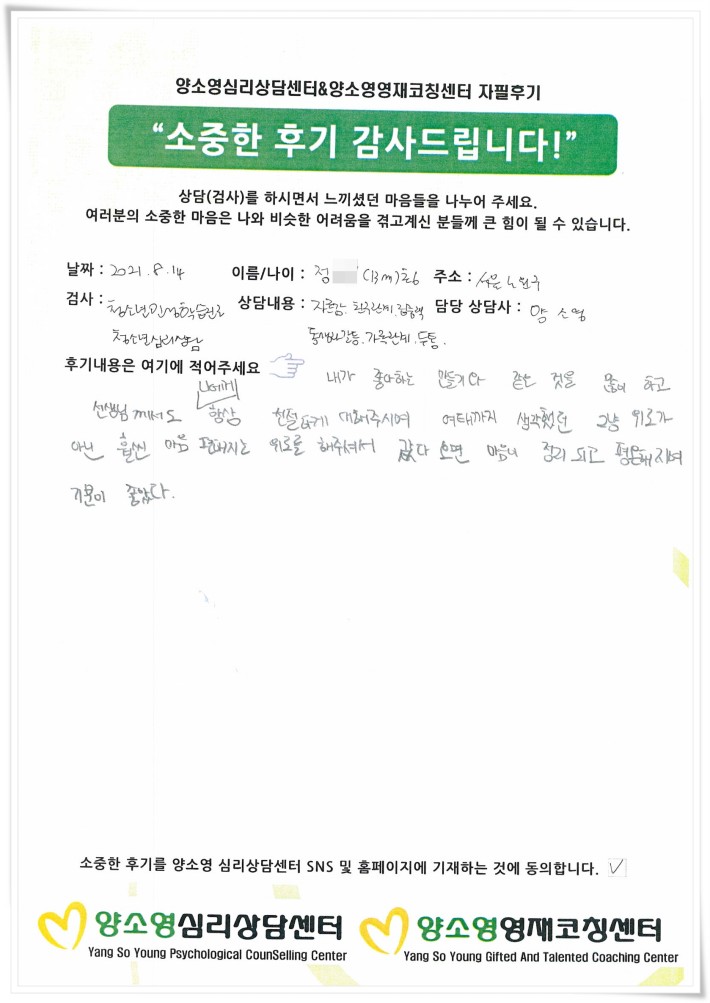 양소영심리상담센터&양소영영재코칭센터 자필후기
“소중한 후기 감사드립니다!”
상담(검사)를 하시면서 느끼셨던 마음들을 나누어 주세요.
여러분의 소중한 마음은 나와 비슷한 어려움을 겪고계신 분들께 큰 힘이 될 수 있습니다.
날짜 : 2021. 8. 14 이름/나이 : 정 (13m)초6 주소 : 서울 노원구
검사 : 청소년 상담내용 : 자존감. 친구관계. 집중력 담당 상담사 : 양 소영
청소년심리상담 동생과갈등. 가족관계. 두통.
후기내용은 여기에 적어주세요
내가 좋아하는 만들기와 같은 것을 많이 하고
나에게
선생님 께서도 항상 친절하게 대해주시며 여태까지 생각했던 그냥 위로가
아닌 훨씬 마음 편해지는 위로를 해주셔서 갔다 오면 마음이 정리 되고 평온해지며
기분이 좋았다.
소중한 후기를 양소영 심리상담센터 SNS 및 홈페이지에 기재하는 것에 동의합니다. ✓
양소영심리상담센터 양소영영재코칭센터
Yang So Young Psychological CounSelling Center Yang So Young Gifted And Talented Coaching Center